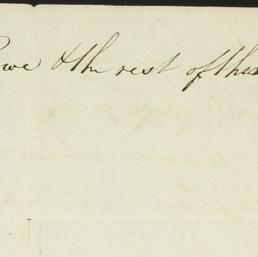 & the rest of the